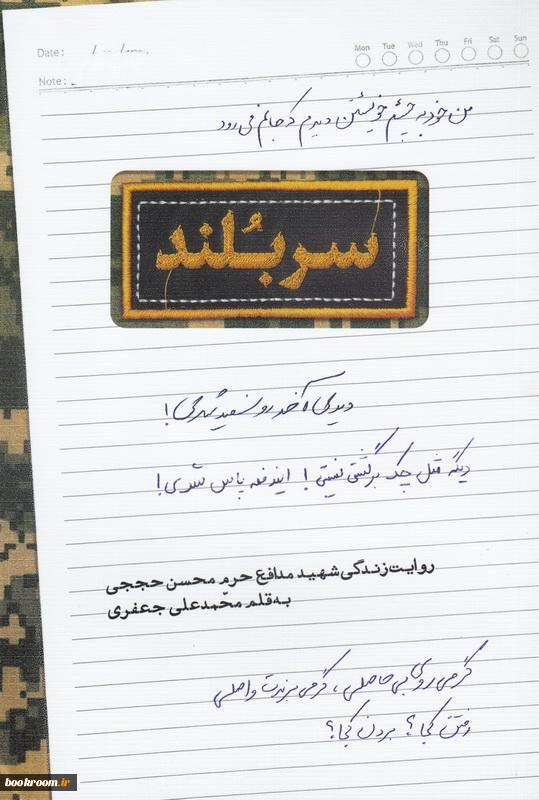 Date:
Mon Tue Wed Thu Fri Sat Sun
Note:
من خود به چشم خویشتن دیدم که جانم می‌رود
سربُلند
دیدی آخر رو سفید شدی!
دیگه مثل چک برگشتی نیستی! ایندفعه پاس شدی!
روایت زندگی شهید مدافع حرم محسن حججی
به قلم محّمدعلی جعفری
گر می‌روی بی‌حاصلی، گر می‌برندت واصلی
رفتن کجا؟ بردن کجا؟
bookroom.ir